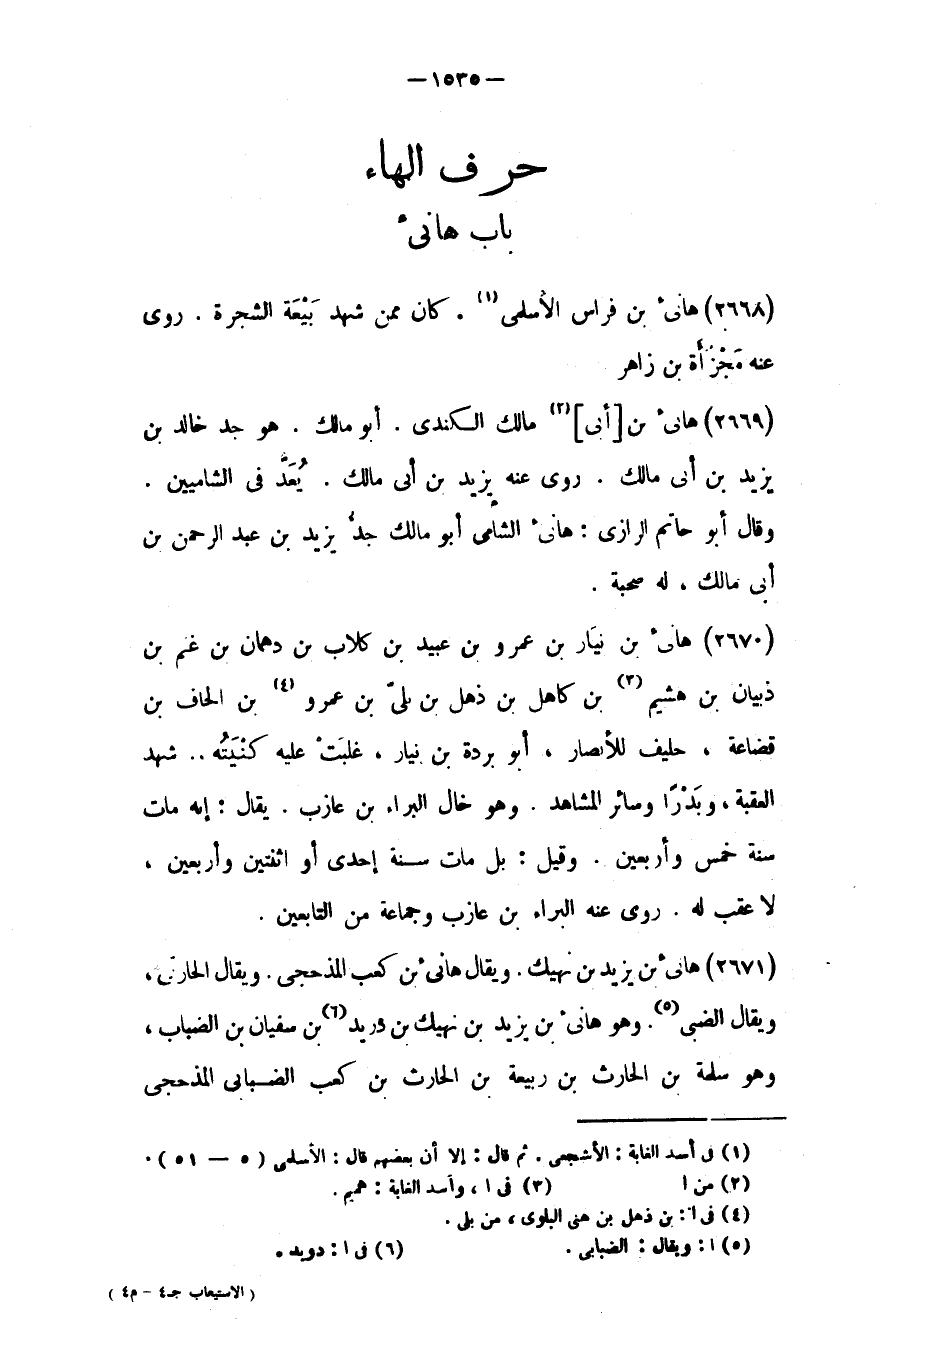 — ١٥٣٥ —
حرف الهاء
باب هانئ
(٢٦٦٨) هانئ بن فراس الأسلمى(١) . كان ممن شهد بَيْعَة الشجرة . روى
عنه مَجْزَأة بن زاهر
(٢٦٦٩) هانئ بن [أبى](٢) مالك الكندى . أبو مالك . هو جد خالد بن
يزيد بن أبى مالك . روى عنه يزيد بن أبى مالك . يُعَدّ فى الشاميين .
وقال أبو حاتم الرازى : هانئ الشامى أبو مالك جدّ يزيد بن عبد الرحمن بن
أبى مالك ، له صحبة .
(٢٦٧٠) هانئ بن نيَار بن عمرو بن عبيد بن كلاب بن دهمان بن غنم بن
ذبيان بن هشيم(٣) بن كاهل بن ذهل بن بلىّ بن عمرو(٤) بن الحاف بن
قضاعة ، حليف للأنصار ، أبو بردة بن نيار ، غلبَتْ عليه كُنْيَتُه .. شهد
العقبة ، وبَدْرًا وسائر المشاهد . وهو خال البراء بن عازب . يقال : إنه مات
سنة خمس وأربعين . وقيل : بل مات سنة إحدى أو اثنتين وأربعين ،
لا عقب له . روى عنه البراء بن عازب وجماعة من التابعين .
(٢٦٧١) هانئ بن يزيد بن نهيك . ويقال هانئ بن كعب المذحجى . ويقال الحارثى ،
ويقال الضبى(٥) . وهو هانئ بن يزيد بن نهيك بن دريد(٦) بن سفيان بن الضباب ،
وهو سلمة بن الحارث بن ربيعة بن الحارث بن كعب الضبابى المذحجى
(١) فى أسد الغابة : الأشجعى . ثم قال : إلا أن بعضهم قال : الأسلمى (٥ — ٥١) .
(٢) من ا (٣) فى ا ، وأسد الغابة : هميم .
(٤) فى ا : بن ذهل بن هنى البلوى ، من بلى .
(٥) ا : ويقال : الضبابى . (٦) فى ا : دويد .
( الاستيعاب جـ٤ - م٤ )